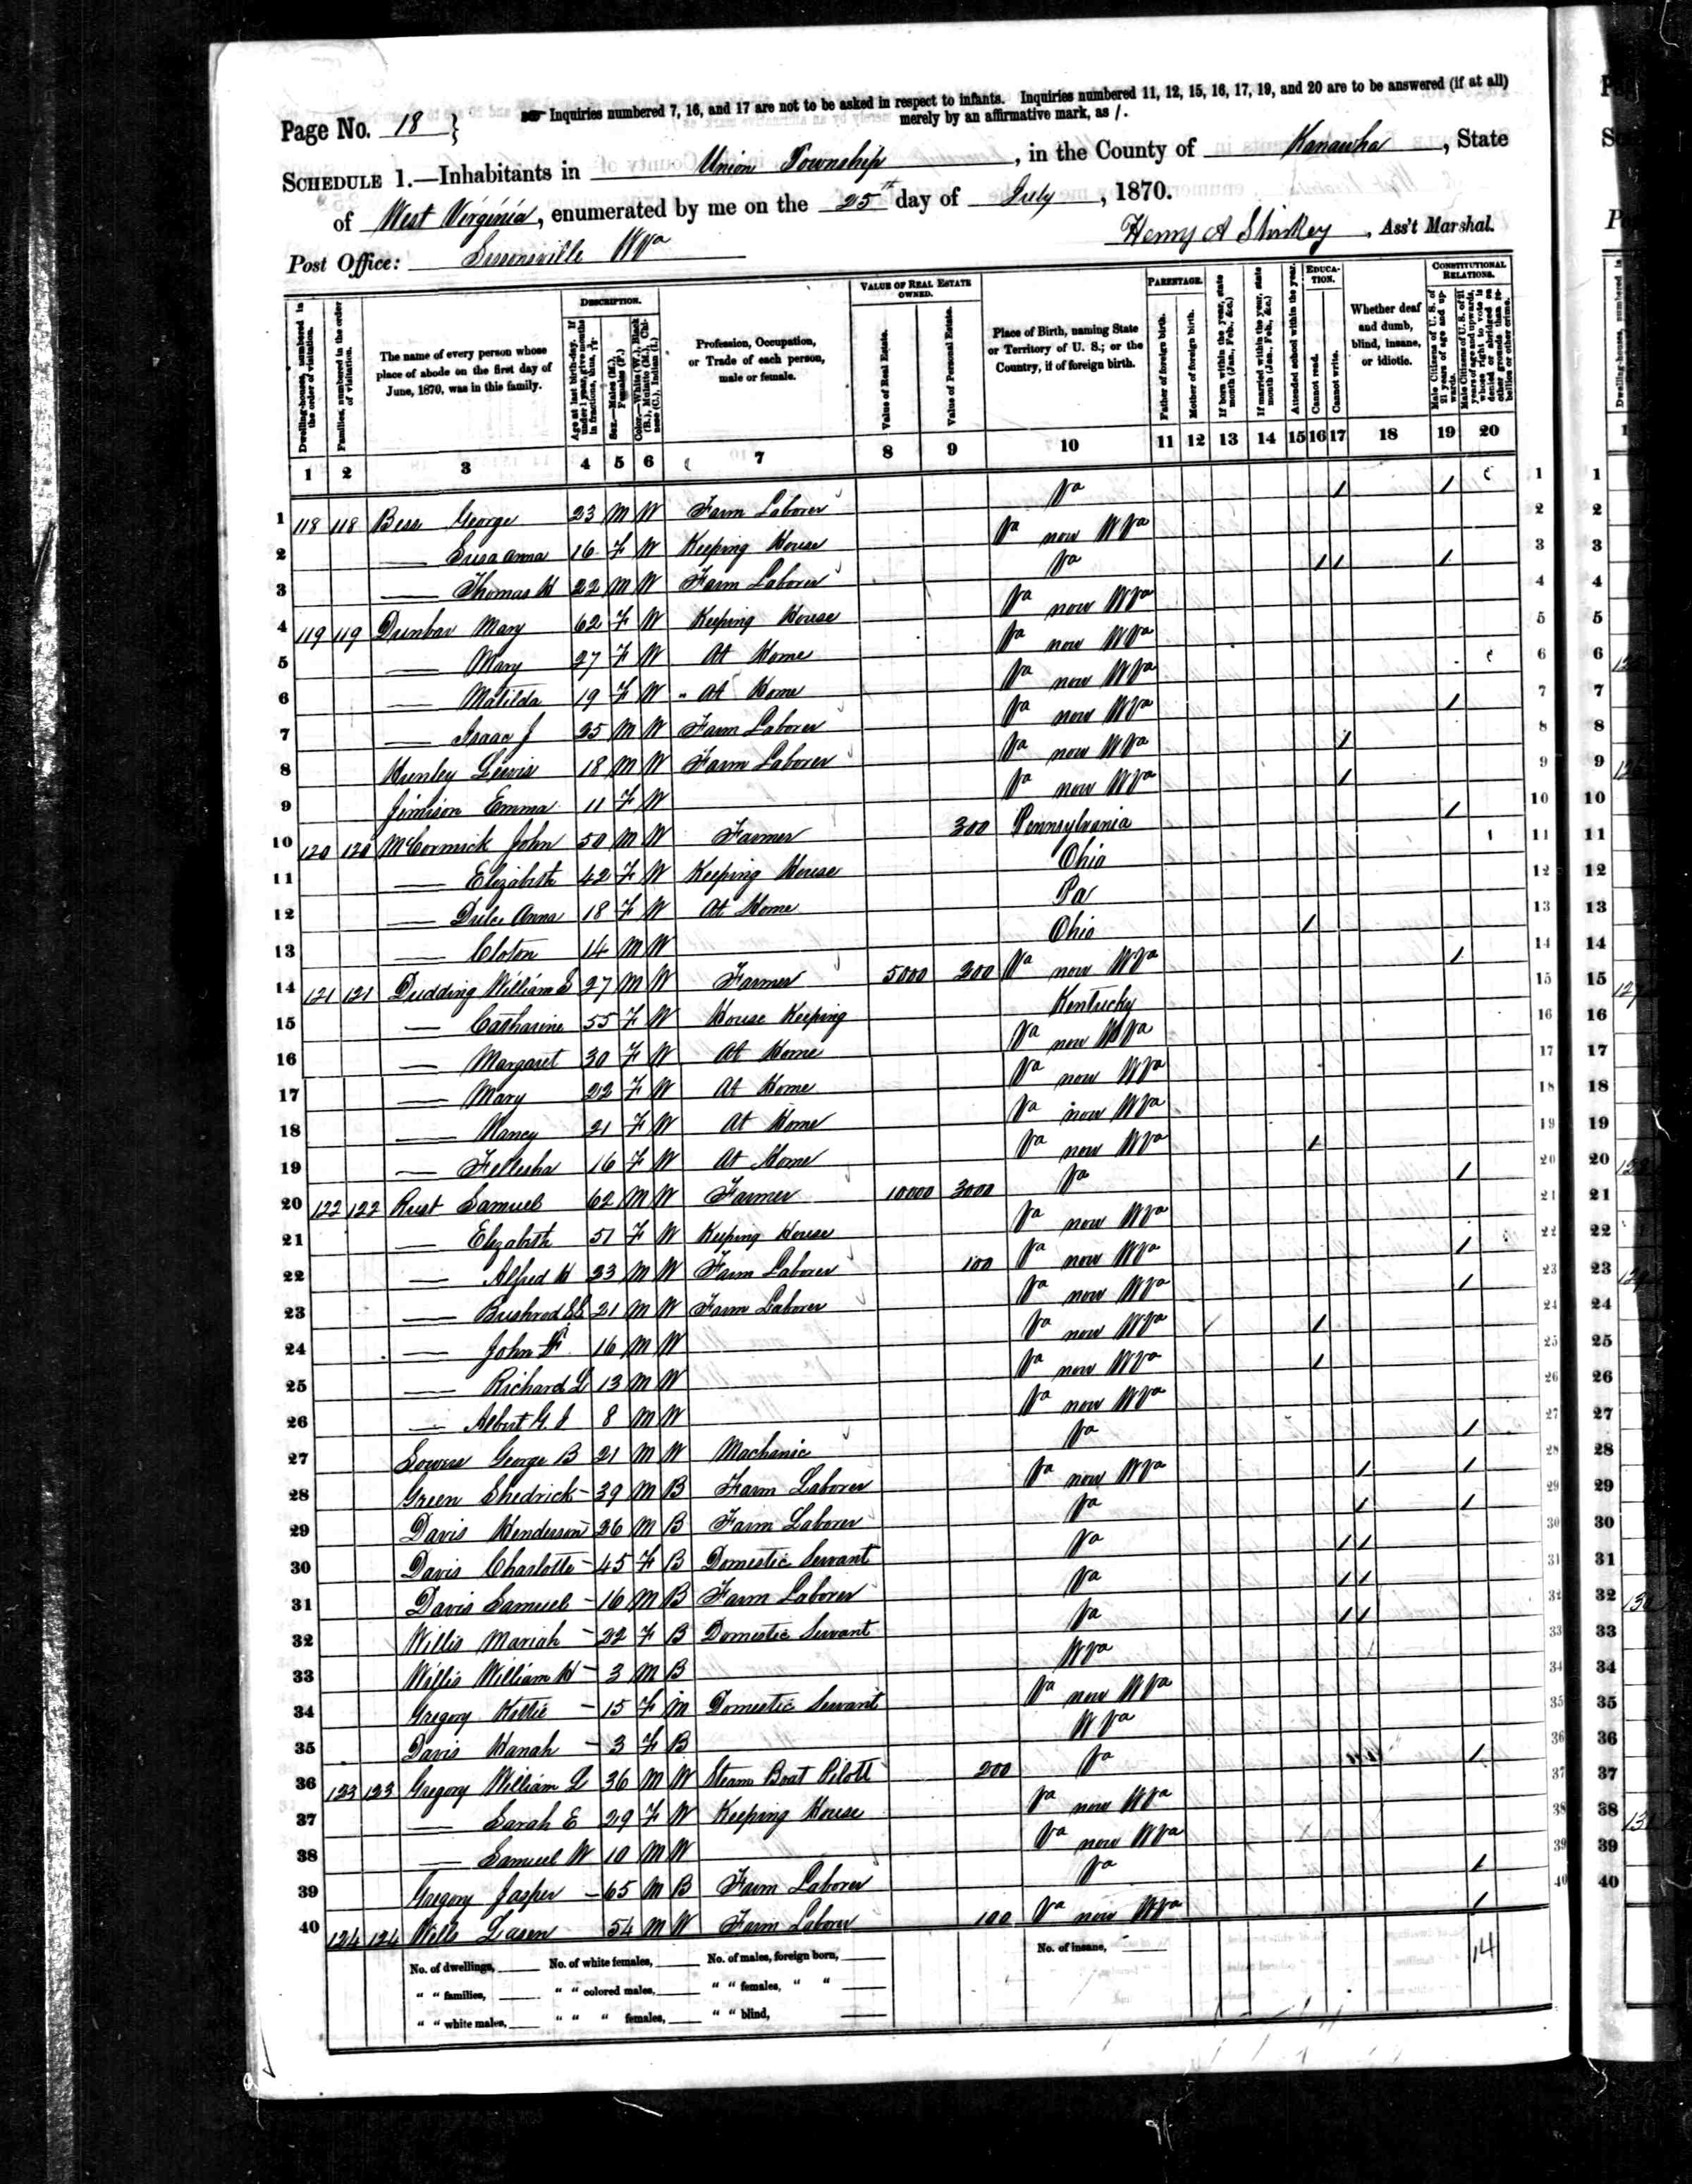 Page No. 18 } Inquiries numbered 7, 16, and 17 are not to be asked in respect to infants. Inquiries numbered 11, 12, 15, 16, 17, 19, and 20 are to be answered (if at all)
merely by an affirmative mark, as /.
SCHEDULE 1.—Inhabitants in Union Township, in the County of Kanawha, State
of West Virginia, enumerated by me on the 25th day of July, 1870.
Post Office: Sissonsville WVa
Henry A Shirkey, Ass't Marshal.
Dwelling-houses, numbered in the order of visitation.
Families, numbered in the order of visitation.
The name of every person whose place of abode on the first day of June, 1870, was in this family.
DESCRIPTION.
Age at last birth-day. If under 1 year, give months in fractions, thus, 3/12.
Sex.—Males (M.), Females (F.)
Color.—White (W.), Black (B.), Mulatto (M.), Chinese (C.), Indian (I.)
Profession, Occupation, or Trade of each person, male or female.
VALUE OF REAL ESTATE OWNED.
Value of Real Estate.
Value of Personal Estate.
Place of Birth, naming State or Territory of U. S.; or the Country, if of foreign birth.
PARENTAGE.
Father of foreign birth.
Mother of foreign birth.
If born within the year, state month (Jan., Feb., &c.)
If married within the year, state month (Jan., Feb., &c.)
Attended school within the year.
EDUCATION.
Cannot read.
Cannot write.
Whether deaf and dumb, blind, insane, or idiotic.
CONSTITUTIONAL RELATIONS.
Male Citizens of U. S. of 21 years of age and upwards.
Male Citizens of U. S. of 21 years of age and upwards, whose right to vote is denied or abridged on other grounds than rebellion or other crime.
1 2 3 4 5 6 7 8 9 10 11 12 13 14 15 16 17 18 19 20
1 118 118 Bess George 23 M W Farm Laborer Va / / 1
2 —— Susa Anna 16 F W Keeping House Va now WVa 2
3 —— Thomas H 22 M W Farm Laborer Va / / / 3
4 119 119 Dunbar Mary 62 F W Keeping House Va now WVa 4
5 —— Mary 27 F W At Home Va now WVa 5
6 —— Matilda 19 F W At Home Va now WVa 6
7 —— Isaac J 25 M W Farm Laborer Va now WVa / 7
8 Hunley Lewis 18 M W Farm Laborer Va now WVa / 8
9 Jimison Emma 11 F W Va now WVa / 9
10 120 120 McCormick John 50 M W Farmer 300 Pennsylvania / 10
11 —— Elizabeth 42 F W Keeping House Ohio 11
12 —— Anna 18 F W At Home Pa 12
13 —— Cloton 14 M W Ohio / 13
14 121 121 Dudding William S 27 M W Farmer 5000 200 Va now WVa / 14
15 —— Catharine 55 F W House Keeping Kentucky 15
16 —— Margaret 30 F W At Home Va now WVa 16
17 —— Mary 22 F W At Home Va now WVa 17
18 —— Nancy 21 F W At Home Va now WVa 18
19 —— Fellesha 16 F W At Home Va now WVa / 19
20 122 122 Rust Samuel 62 M W Farmer 10000 3000 Va / 20
21 —— Elizabeth 51 F W Keeping House Va now WVa 21
22 —— Alfred H 33 M W Farm Laborer 100 Va now WVa / 22
23 —— Bushrod 21 M W Farm Laborer Va now WVa / 23
24 —— John F 16 M W Va now WVa / 24
25 —— Richard L 13 M W Va now WVa / 25
26 —— Albert G J 8 M W Va now WVa 26
27 Sowers George B 21 M W Machanic Va / 27
28 Green Shedrick 39 M B Farm Laborer Va now WVa / / 28
29 Davis Henderson 26 M B Farm Laborer Va / / 29
30 Davis Charlotte 45 F B Domestic Servant Va / / 30
31 Davis Samuel 16 M B Farm Laborer Va / / 31
32 Willis Mariah 22 F B Domestic Servant Va / / 32
33 Willis William H 3 M B WVa 33
34 Gregory Kittie 15 F M Domestic Servant Va now WVa 34
35 Davis Hanah 3 F B WVa 35
36 123 123 Gregory William L 36 M W Steam Boat Pilott 200 Va / 36
37 —— Sarah E 29 F W Keeping House Va now WVa 37
38 —— Samuel W 10 M W Va now WVa 38
39 Gregory Jasper 65 M B Farm Laborer Va / 39
40 124 124 Wells 54 M W Farm Laborer 100 Va now WVa / 40
No. of dwellings, No. of white females, No. of males, foreign born, No. of insane, 14
" " families, " " colored males, " " females, " "
" " white males, " " " females, " " blind,